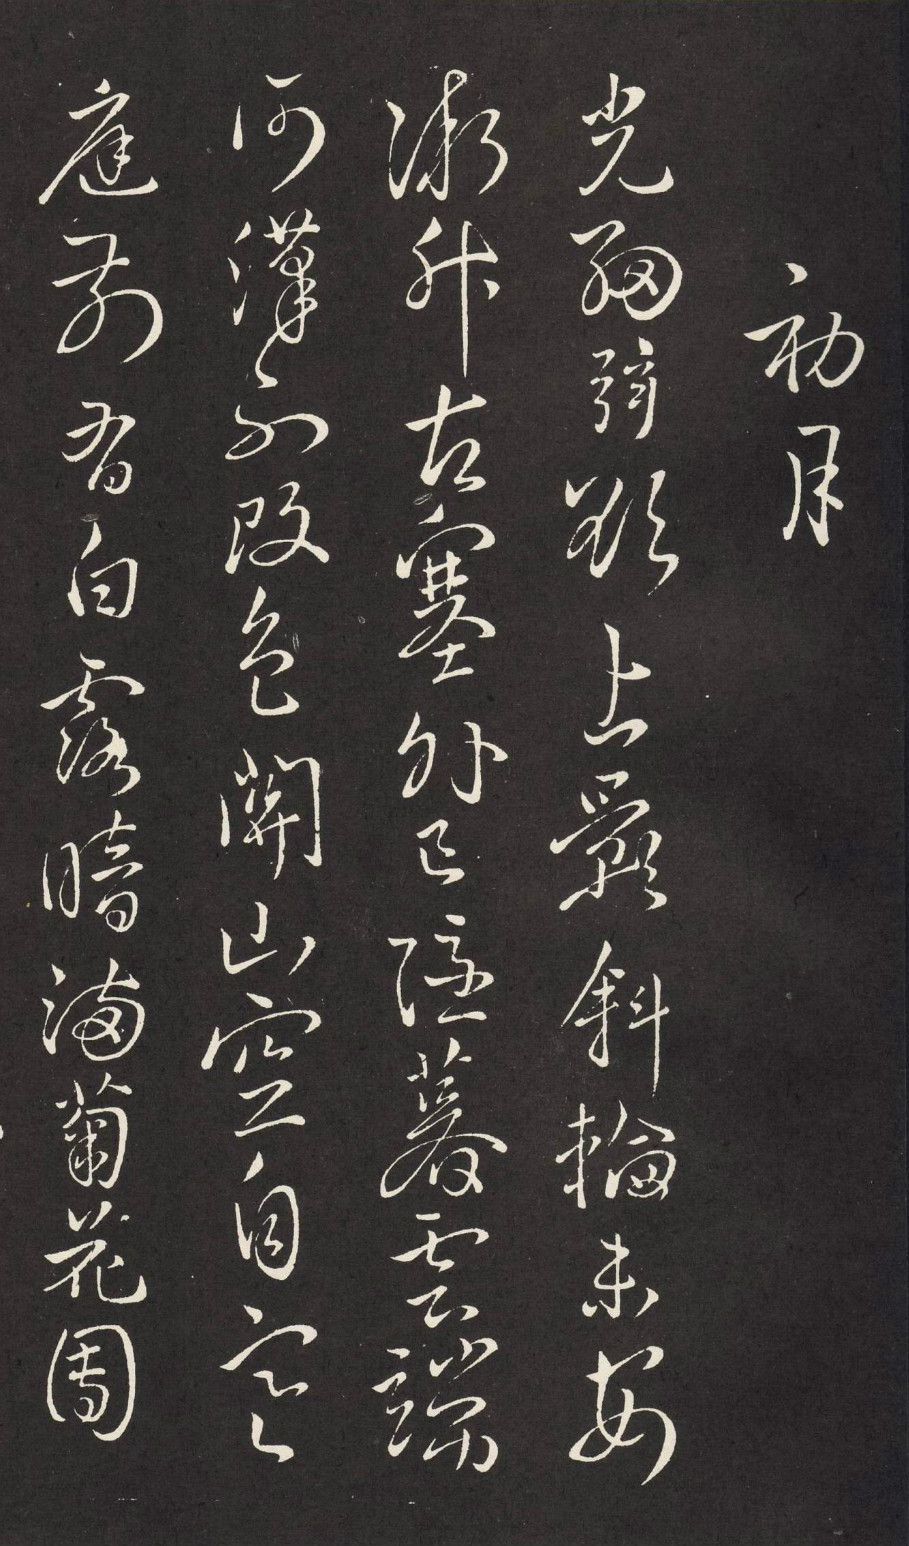 初月
光細弦欲上影斜輪未安
微升古塞外已隱暮雲端
河漢不改色關山空自寒
庭前有白露暗滿菊花團